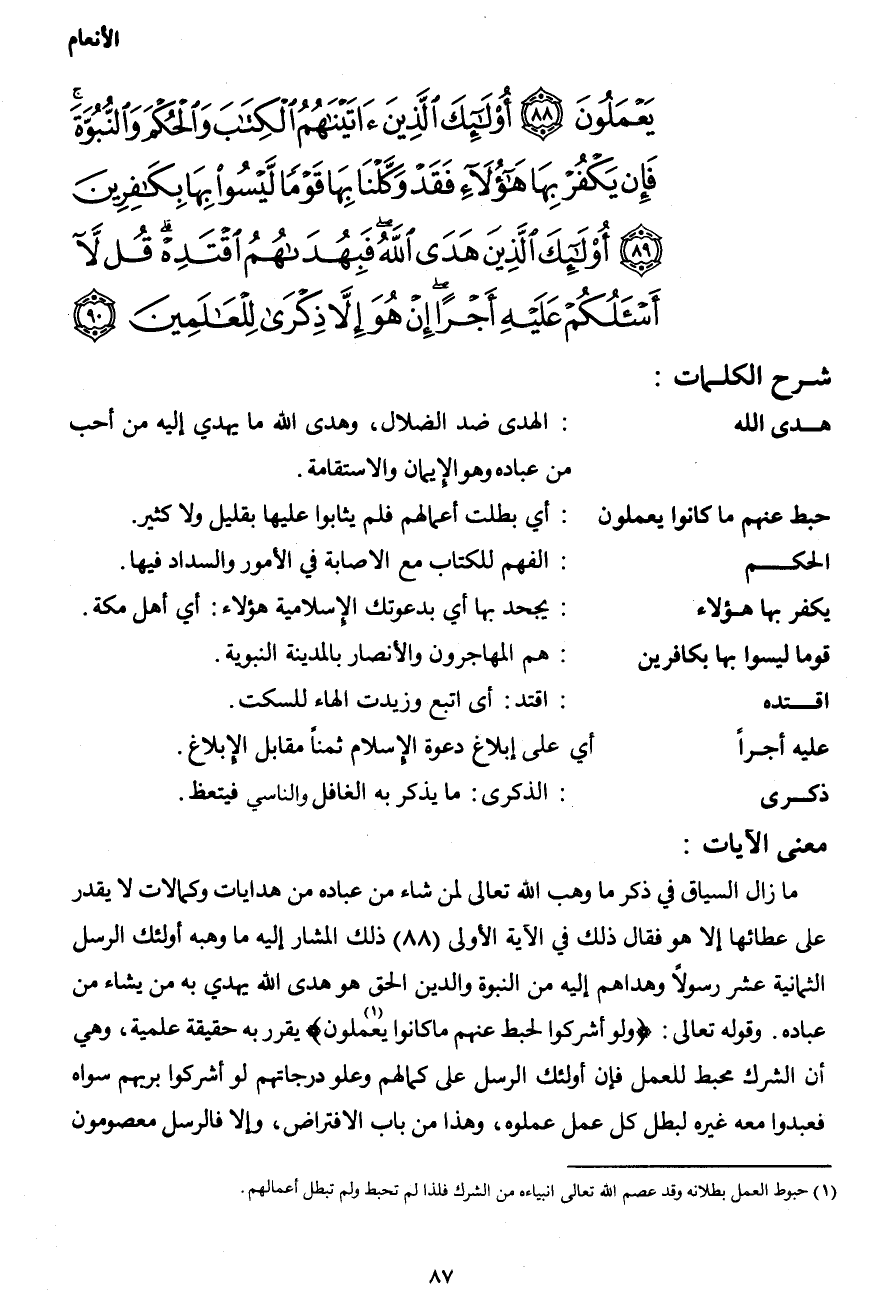 الأنعام
يَعۡمَلُونَ ٨٨ أُوْلَٰٓئِكَ ٱلَّذِينَ ءَاتَيۡنَٰهُمُ ٱلۡكِتَٰبَ وَٱلۡحُكۡمَ وَٱلنُّبُوَّةَۚ
فَإِن يَكۡفُرۡ بِهَا هَٰٓؤُلَآءِ فَقَدۡ وَكَّلۡنَا بِهَا قَوۡمٗا لَّيۡسُواْ بِهَا بِكَٰفِرِينَ
٨٩ أُوْلَٰٓئِكَ ٱلَّذِينَ هَدَى ٱللَّهُۖ فَبِهُدَىٰهُمُ ٱقۡتَدِهۡۗ قُل لَّآ
أَسۡـَٔلُكُمۡ عَلَيۡهِ أَجۡرًاۖ إِنۡ هُوَ إِلَّا ذِكۡرَىٰ لِلۡعَٰلَمِينَ ٩٠
شرح الكلمات :
هدى الله : الهدى ضد الضلال، وهدى الله ما يهدي إليه من أحب
من عباده وهو الإيمان والاستقامة .
حبط عنهم ما كانوا يعملون : أي بطلت أعمالهم فلم يثابوا عليها بقليل ولا كثير.
الحكم : الفهم للكتاب مع الاصابة في الأمور والسداد فيها .
يكفر بها هؤلاء : يجحد بها أي بدعوتك الإسلامية هؤلاء : أي أهل مكة .
قوما ليسوا بها بكافرين : هم المهاجرون والأنصار بالمدينة النبوية .
اقتده : اقتد : أى اتبع وزيدت الهاء للسكت .
عليه أجراً أي على إبلاغ دعوة الإسلام ثمناً مقابل الإبلاغ .
ذكرى : الذكرى : ما يذكر به الغافل والناسي فيتعظ .
معنى الآيات :
ما زال السياق في ذكر ما وهب الله تعالى لمن شاء من عباده من هدايات وكمالات لا يقدر
على عطائها إلا هو فقال ذلك في الآية الأولى (٨٨) ذلك المشار إليه ما وهبه أولئك الرسل
الثمانية عشر رسولاً وهداهم إليه من النبوة والدين الحق هو هدى الله يهدي به من يشاء من
عباده . وقوله تعالى : ﴿ولو أشركوا لحبط عنهم ماكانوا يعملون﴾(١) يقرر به حقيقة علمية ، وهي
أن الشرك محبط للعمل فإن أولئك الرسل على كمالهم وعلو درجاتهم لو أشركوا بربهم سواه
فعبدوا معه غيره لبطل كل عمل عملوه ، وهذا من باب الافتراض ، وإلا فالرسل معصومون
(١) حبوط العمل بطلانه وقد عصم الله تعالى انبياءه من الشرك فلذا لم تحبط ولم تبطل أعمالهم .
٨٧